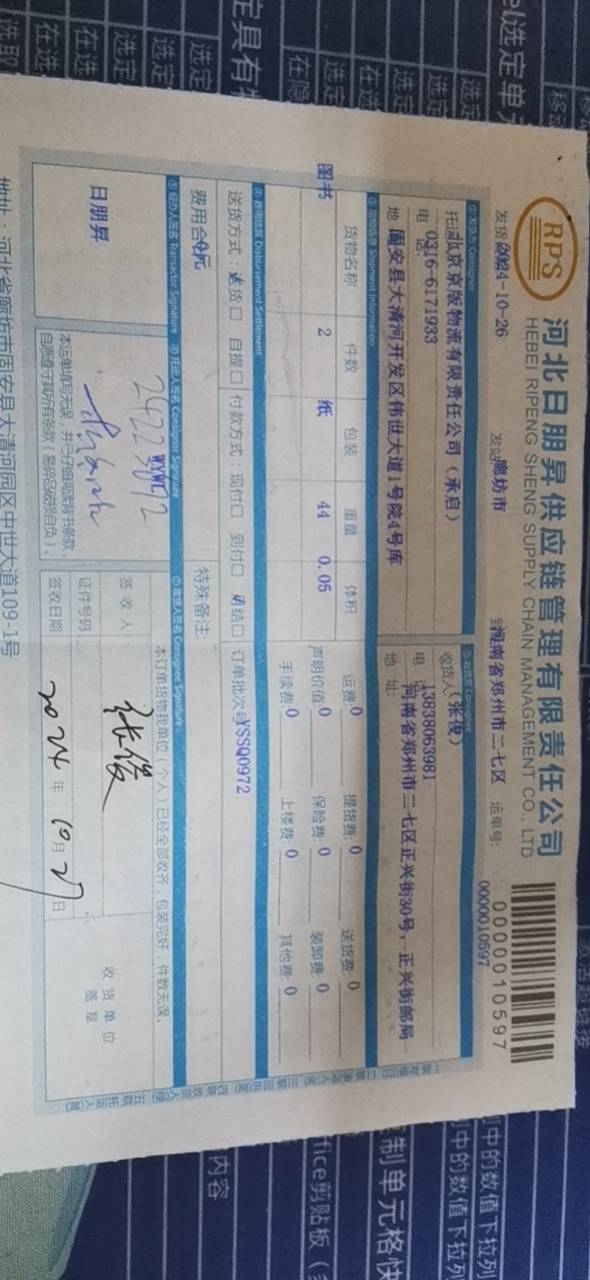 RPS
河北日朋昇供应链管理有限责任公司
HEBEI RIPENG SHENG SUPPLY CHAIN MANAGEMENT CO., LTD
0000010597
发货 2024-10-26 发站 廊坊市 河南省郑州市二七区 运单号: 0000010597
①发货方 Consignor
北京京版物流有限责任公司（承启）
电 0316-6171933
地 固安县大清河开发区伟世大道1号院4号库
②收货方 Consignee
收货人（张俊）
电 13838063981
地址: 河南省郑州市二七区正兴街30号，正兴街邮局
③货物信息 Shipment Information
货物名称 件数 包装 重量 体积
图书 2 纸 44 0.05
运费: 0 提货费: 0 送货费: 0
声明价值: 0 保险费: 0 装卸费: 0
手续费: 0 上楼费: 0 其他费: 0
④费用结算 Disbursement Settlement
送货方式: 送货□ 自提□ 付款方式: 现付□ 到付□ 月结□ 订单批次号YSSQ0972
费用合 0元 特殊备注:
⑤经办人签名 Transactor Signature
日朋昇
⑥托运人签名 Consignor Signature
本运单填写无误，并已仔细阅读背书条款，
自愿遵守其所有条款（易碎品破损自负）。
⑦收货人签名 Consignee Signature
本订单货物我单位（个人）已经全部收齐，包装完好，件数无误。
签收人 张俊
证件号码
签收日期 2024年10月27日
收货单位
盖章
地址：河北省廊坊市固安县大清河园区中世大道109-1号
选定单元
定具有
在选
选定
内容
fice剪贴板
制单元格快
列中的数值下拉列
列中的数值下拉列